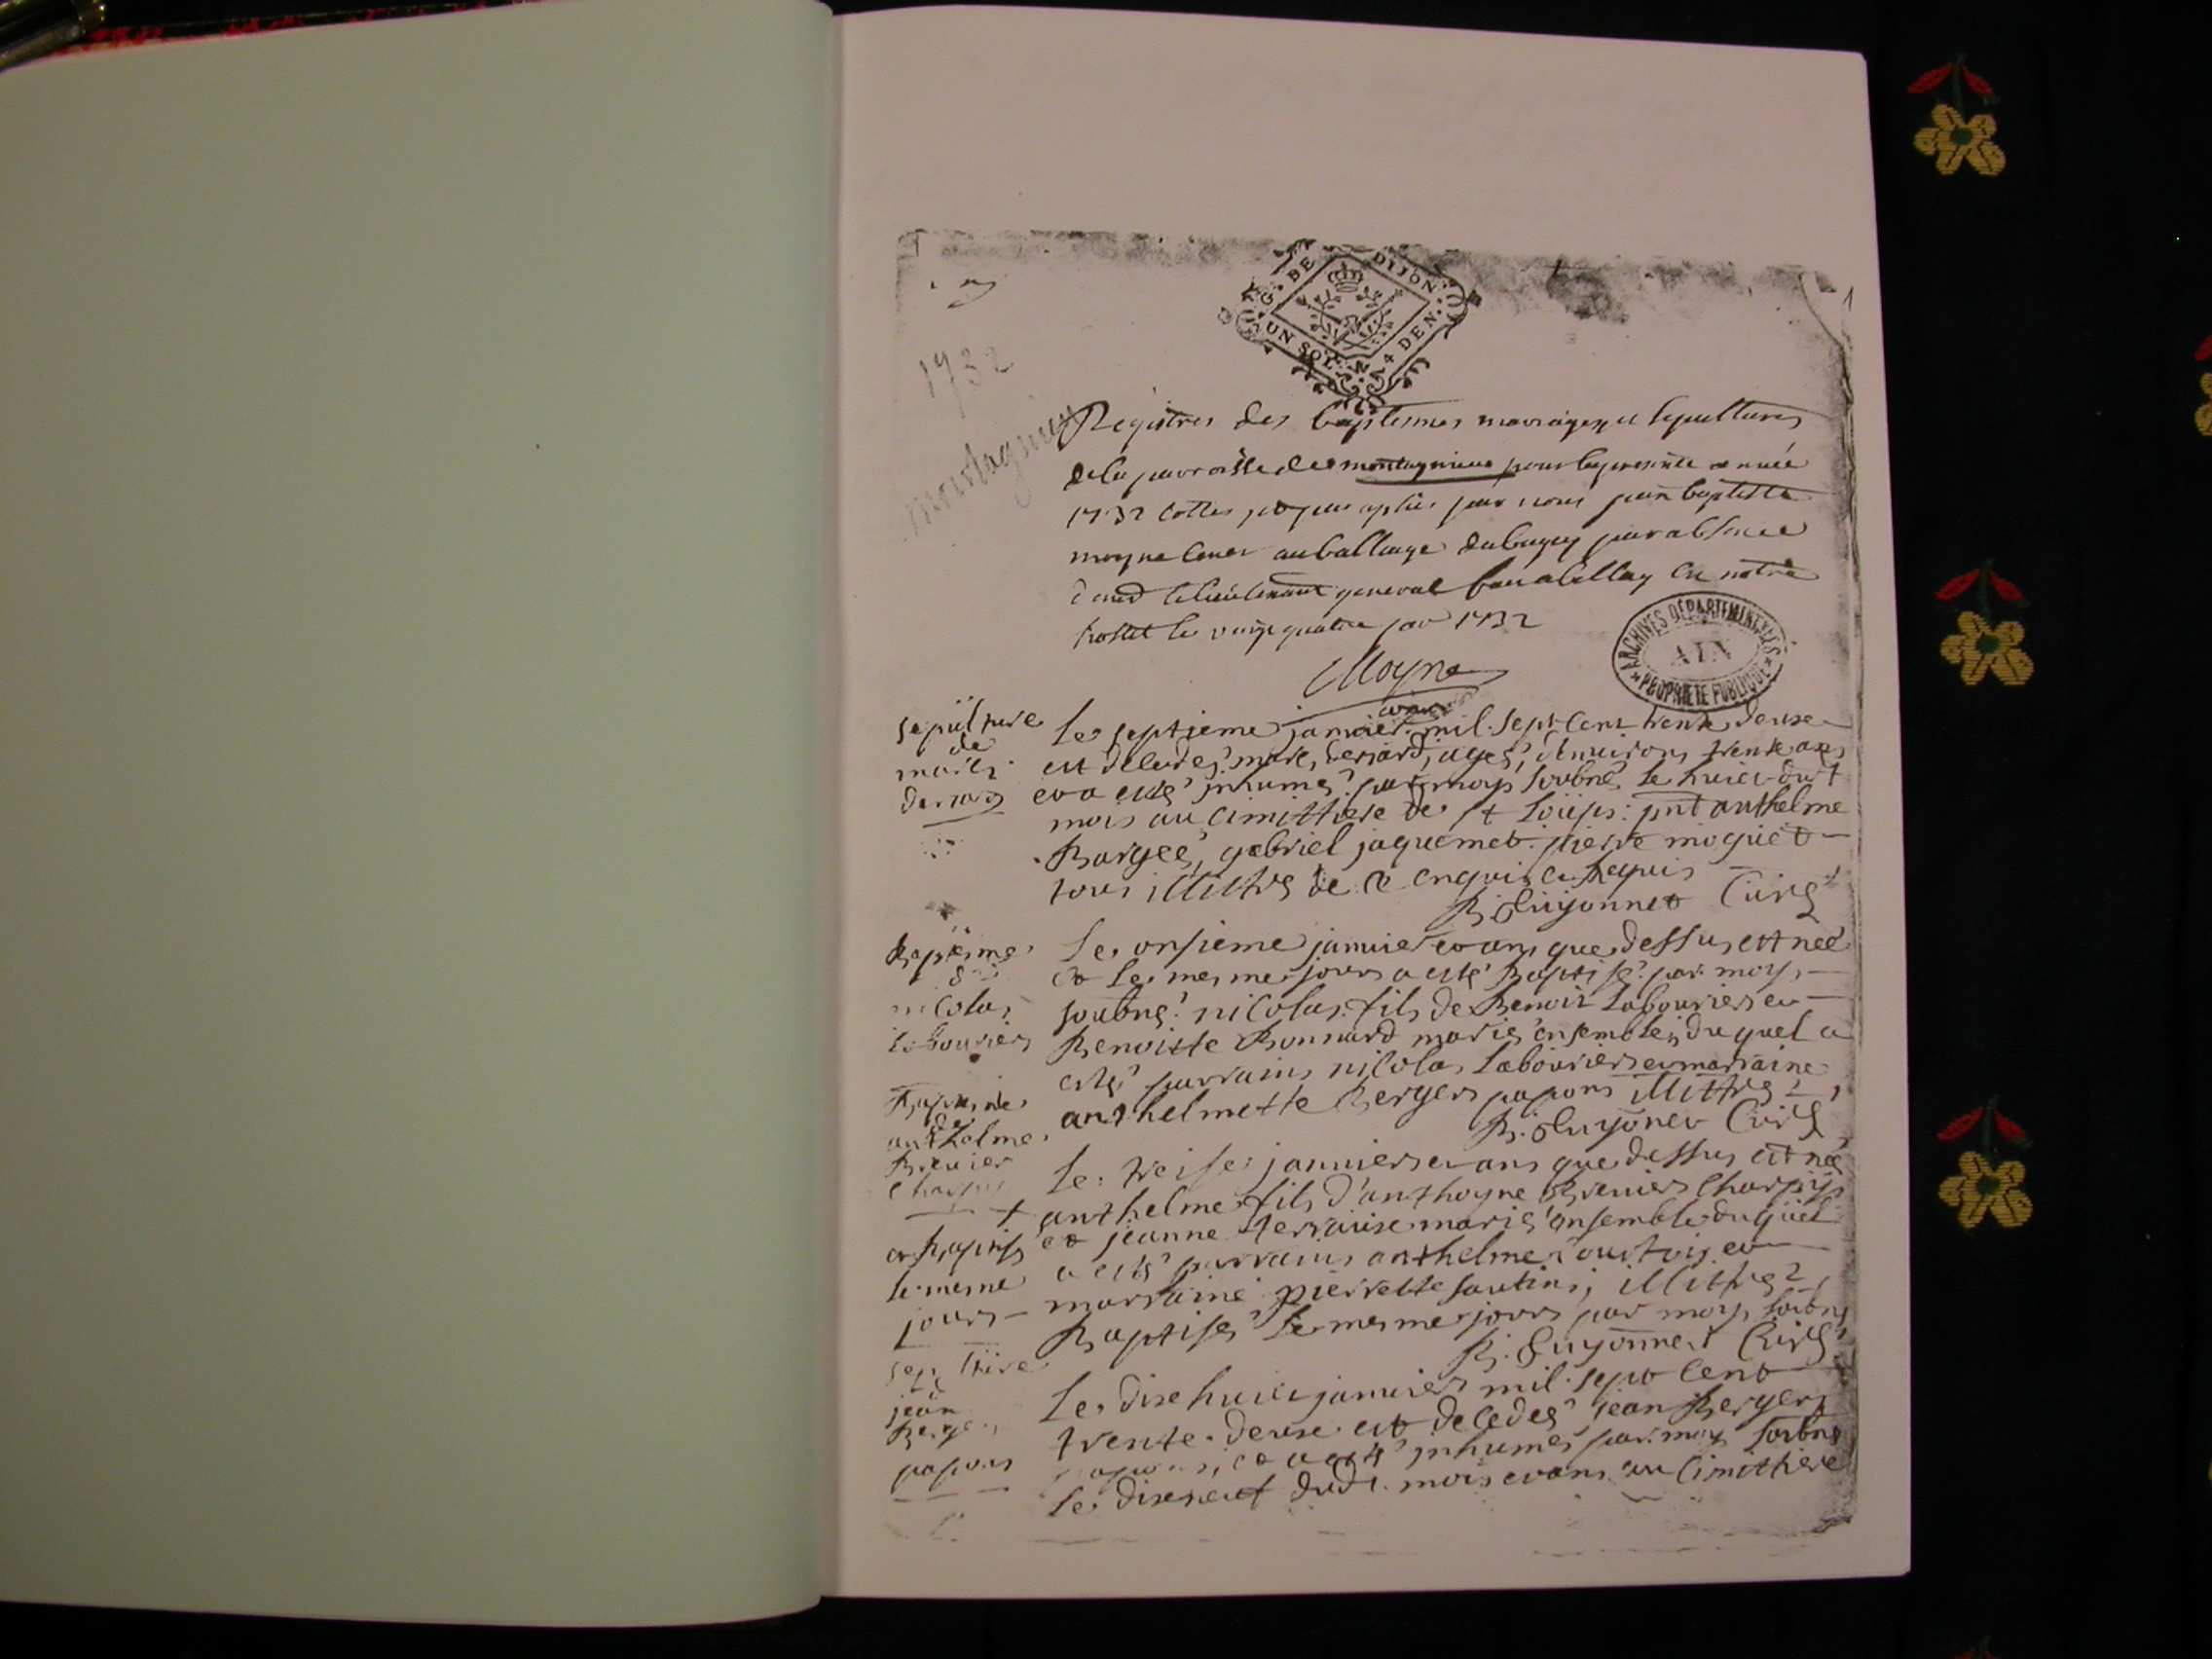 G. DE DIJON
UN SOL 4 DEN.
1
1732
montagnieu
Registres des baptesmes mariages et sepultures
de la parroisse de montagnieu pour la presente année
1732 cottes par nous jean baptiste
moyne au balliage du bugey par absence
le lieutenant general en notre
hostel le vingt quatre 1732
Moyne
ARCHIVES DÉPARTEMENTALES
AIN
PROPRIÉTÉ PUBLIQUE
sepulture
de
Le septieme janvier mil sept cent trente deuse
est decedes marc agés d'enuiron trente ans
et a estés inhumés par moy soubné le huict du dt
mois au cimittiere de St Loüps: pnt anthelme
Barges, gabriel jaquemet pierre moquet
tous illittres de ce enquis et requis
B. Guyonnet Curé
Baptesme
de
nicolas
Labouriers
Le onsieme janvier et ans que dessus est née
et le mesme jours a esté Baptisé par moy
soubné nicolas fils de Benoit Labouriers et
Benoitte Bonnard mariés ensembles du quel a
estés parrains nicolas Labouriers et marraine
anthelmette Bergers papons illittrés
B. Guyonet Curé
Baptesme
de
anthelme
Brevier
Charpy
Le treise janviers et ans que dessus est née
+ anthelme fils d'anthoyne Breviers Charpy
et Baptisés
le mesme
jours
et jeanne terraise mariés ensemble duquel
a estés parrains anthelme Courtois et
marraine pierrette sautin, illittrés
Baptisés le mesme jours par moy soubné
B. Guyonnet Curé
sepulture
jean
Bergers
papons
Le dixe huict janviers mil sept cent
trente deuse est decedés jean Bergers
papons, et a esté inhumés par moy soubné
le dixeneuf dudt. mois et ans au cimittiere